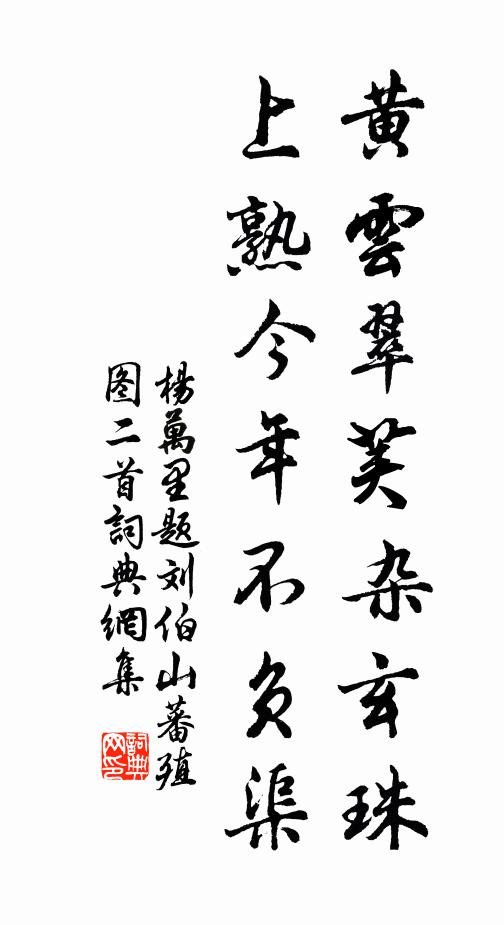 黄雲翠荚杂玄珠
上熟今年不负渠
楊萬里题刘伯山蕃殖
图二首詞典網集
詞典
网印